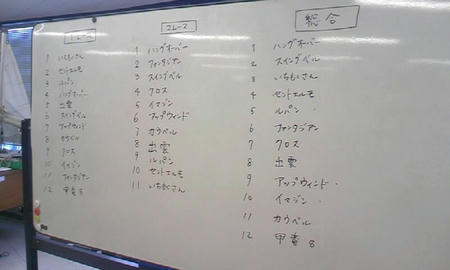 1レース
1 いちもくさん
2 セントエルモ
3 ルパン
4 ハングオーバー
5 出雲
6 スイングベル
7 アップウインド
8 カウベル
9 クロス
10 イマジン
11 ファンタジアン
12 甲斐8
2レース
1 ハングオーバー
2 ファンタジアン
3 スイングベル
4 クロス
5 イマジン
6 アップウインド
7 カウベル
8 出雲
9 ルパン
10 セントエルモ
11 いちもくさん
総合
1 ハングオーバー
2 スイングベル
3 いちもくさん
4 セントエルモ
5 ルパン
6 ファンタジアン
7 クロス
8 出雲
9 アップウインド
10 イマジン
11 カウベル
12 甲斐8